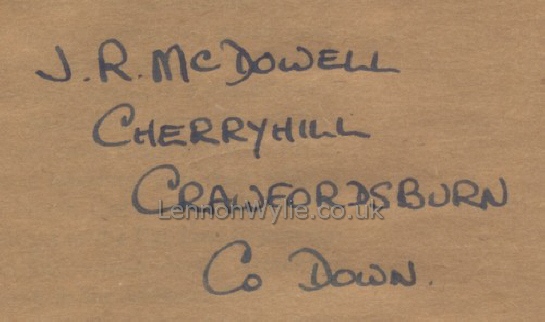 J. R. McDOWELL
CHERRYHILL
CRAWFORDSBURN
LennonWylie.co.uk
Co DOWN.